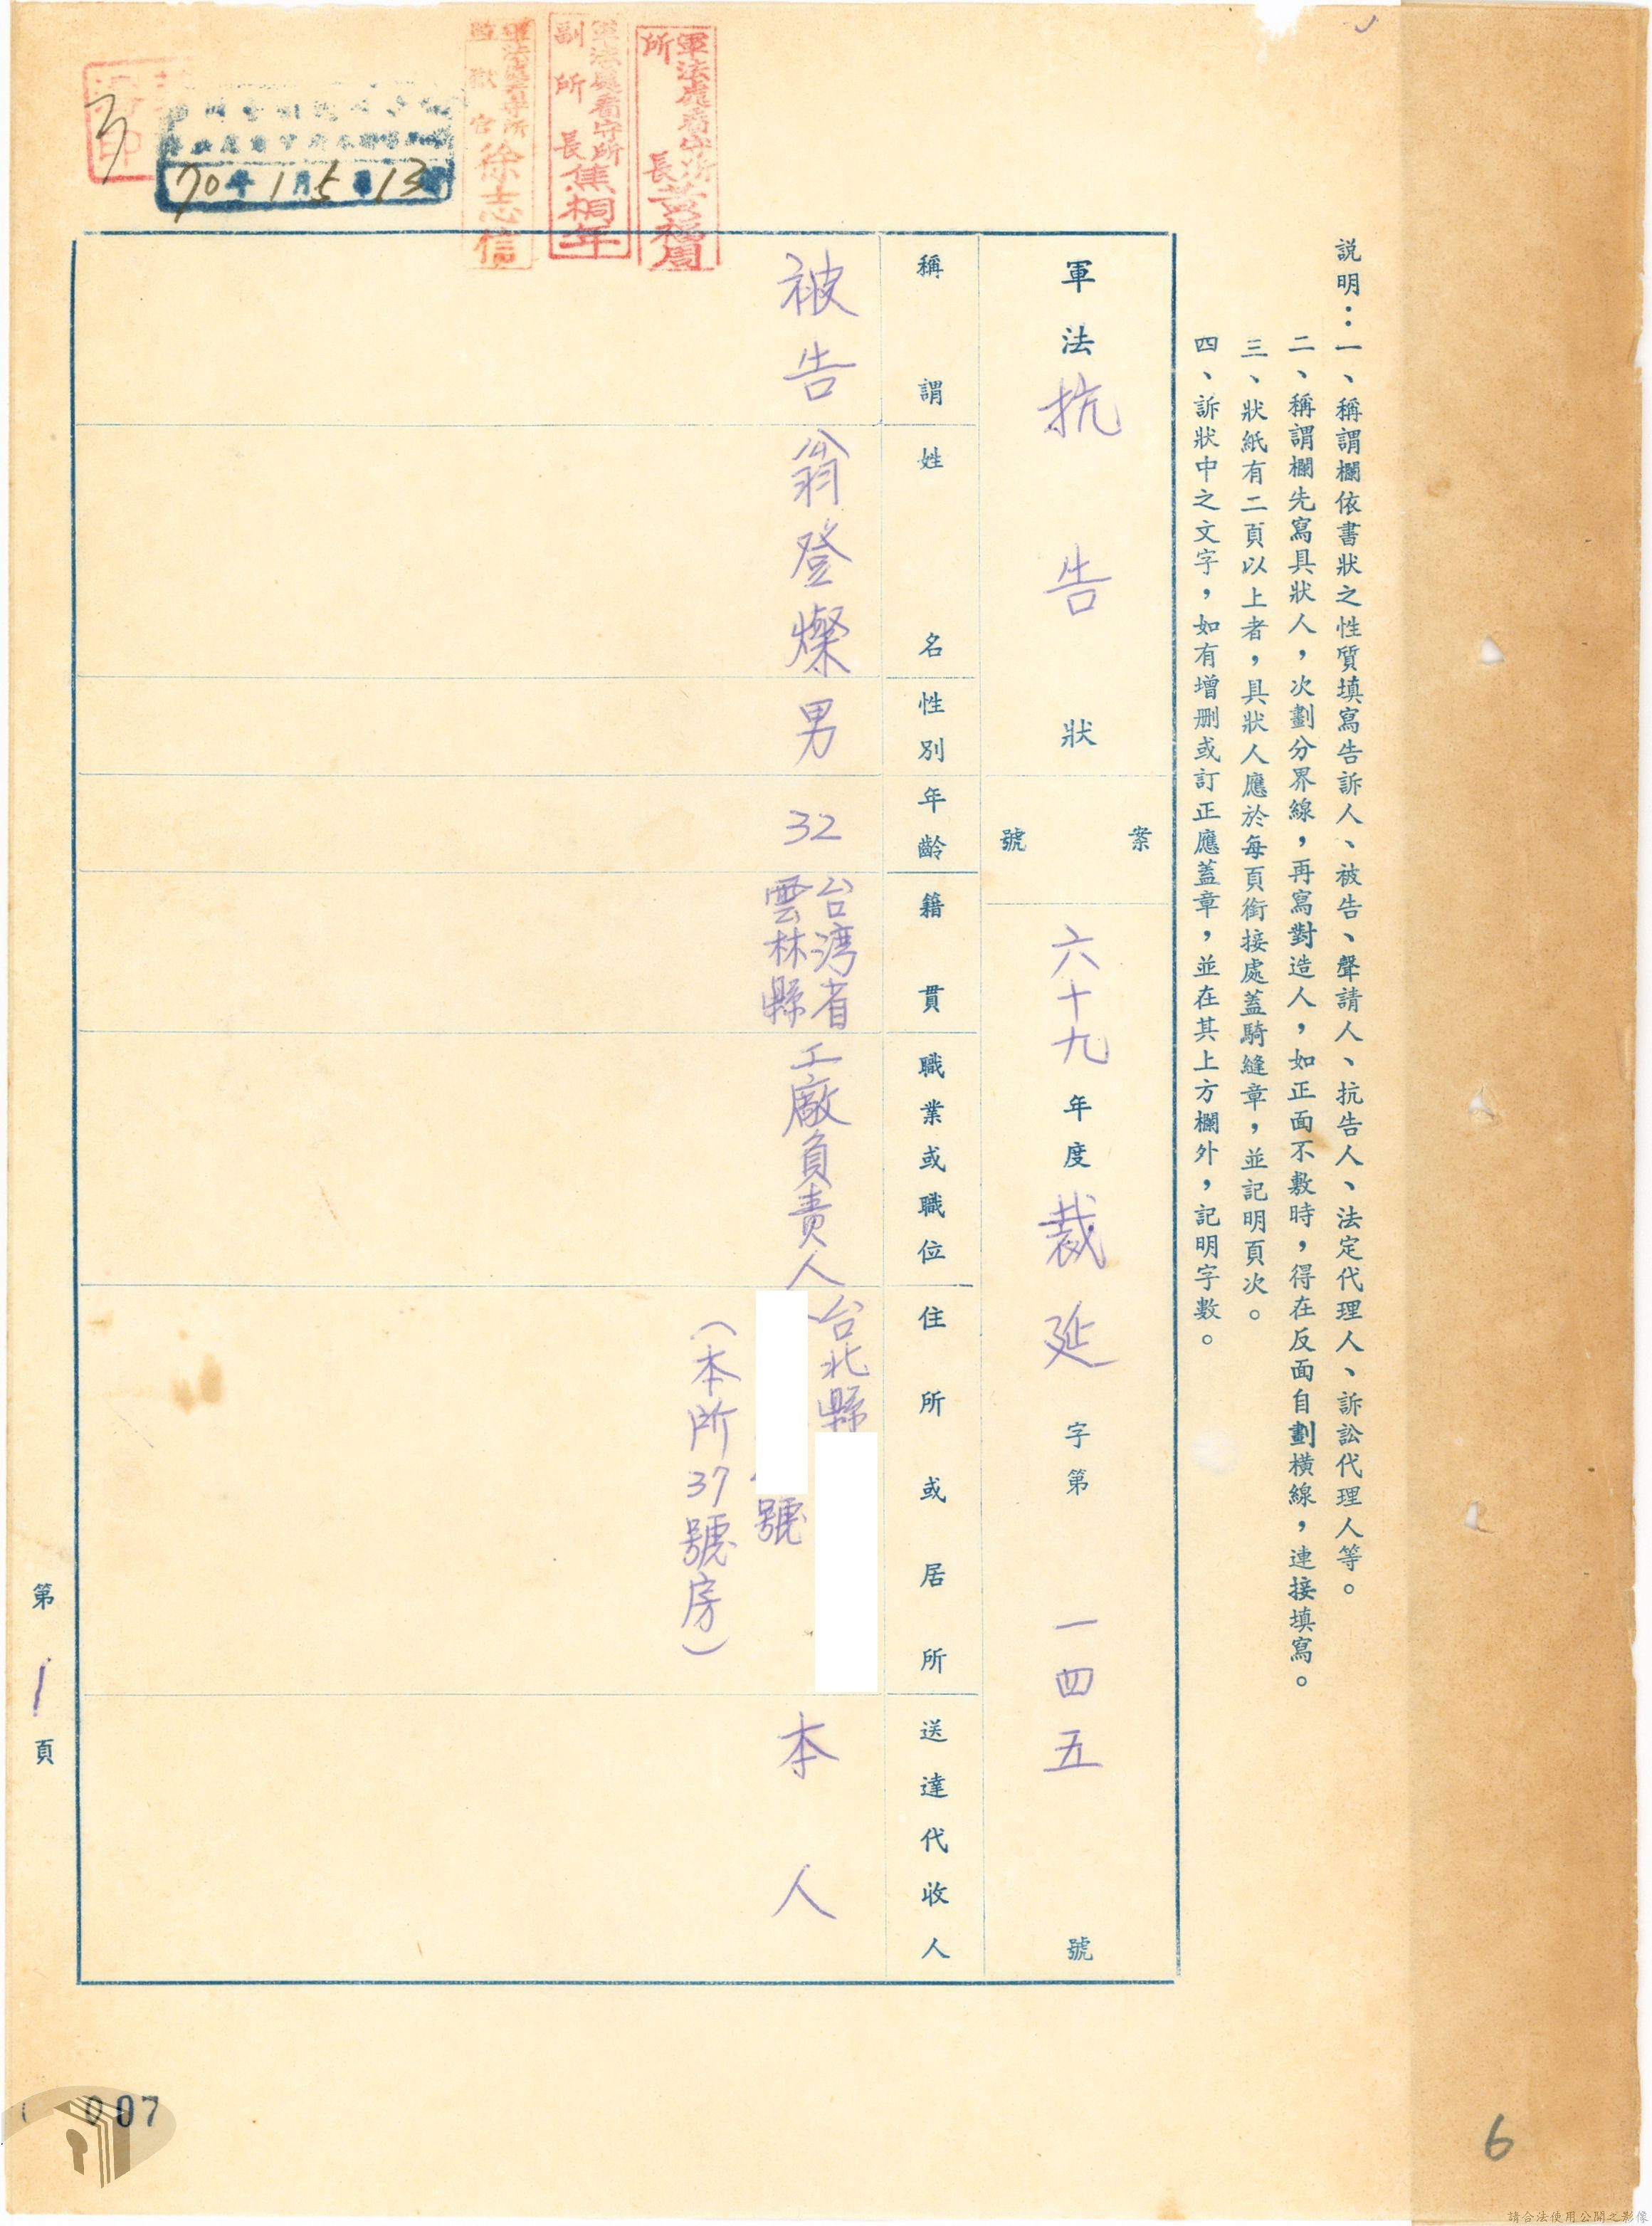 說明：一、稱謂欄依書狀之性質填寫告訴人、被告、聲請人、抗告人、法定代理人、訴訟代理人等。
二、稱謂欄先寫具狀人，次劃分界線，再寫對造人，如正面不敷時，得在反面自劃橫線，連接填寫。
三、狀紙有二頁以上者，具狀人應於每頁銜接處蓋騎縫章，並記明頁次。
四、訴狀中之文字，如有增刪或訂正應蓋章，並在其上方欄外，記明字數。
軍法抗告狀
案號
六十九年度裁延字第一四五號
稱謂
姓名
性別
年齡
籍貫
職業或職位
住所或居所
送達代收人
被告
翁登燦
男
32
台湾省
雲林縣
工廠負責人
台北縣
號
（本所37號房）
本人
軍法處看守所
所長黃福周
軍法處看守所
副所長焦桐年
軍法處看守所
監獄官徐志信
70年1月5日13時
第1頁
007
6
請合法使用公開之影像